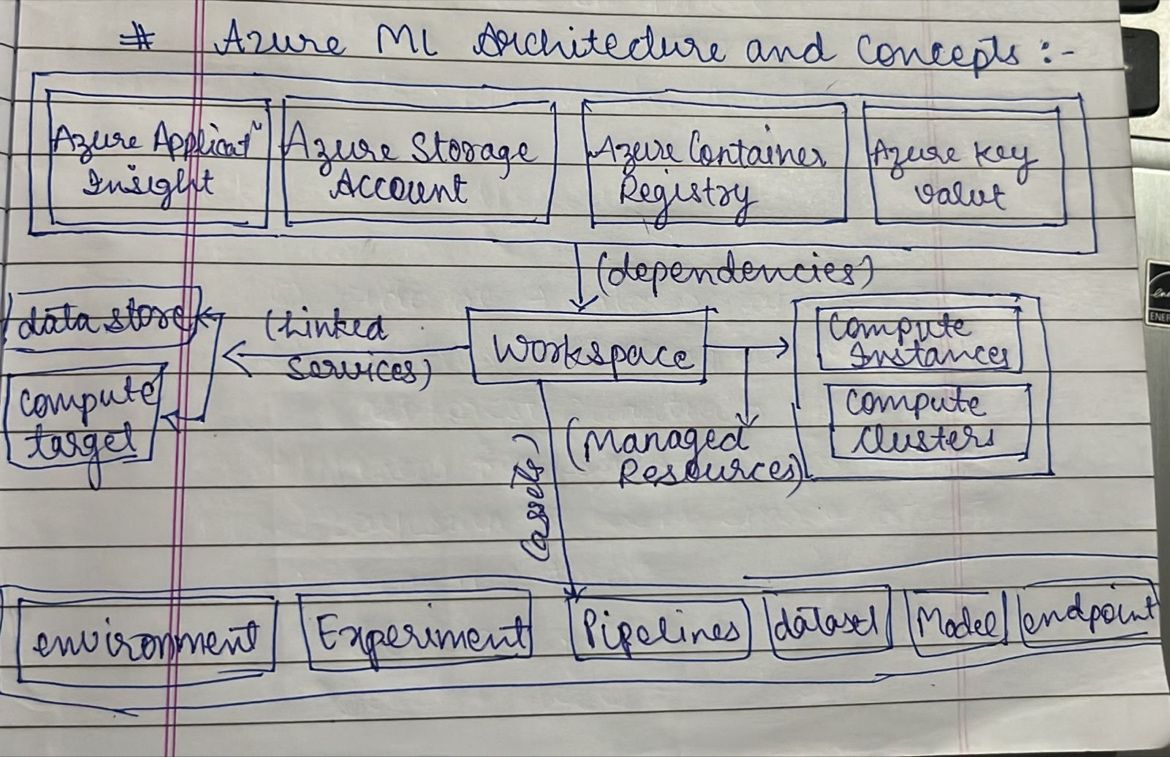 # Azure ML Architecture and Concepts :-
Azure Applicatⁿ
Insight
Azure Storage
Account
Azure Container
Registry
Azure Key
valut
(dependencies)
data store
compute
target
(Linked
services)
Workspace
Compute
Instances
Compute
Clusters
(Managed
Resources)
(assets)
environment
Experiment
Pipelines
dataset
Model
endpoint